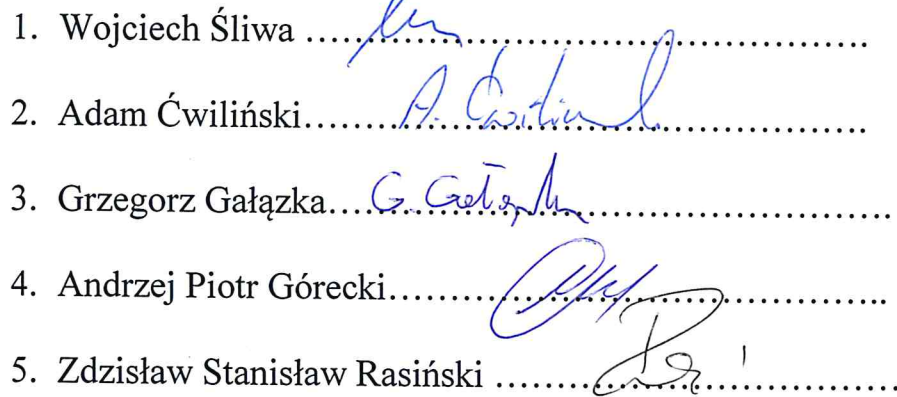 1. Wojciech Śliwa ....................................................
2. Adam Ćwiliński....... A. Ćwiliń.......................
3. Grzegorz Gałązka.... G. Gałązka............................
4. Andrzej Piotr Górecki..............................................
5. Zdzisław Stanisław Rasiński ......................................